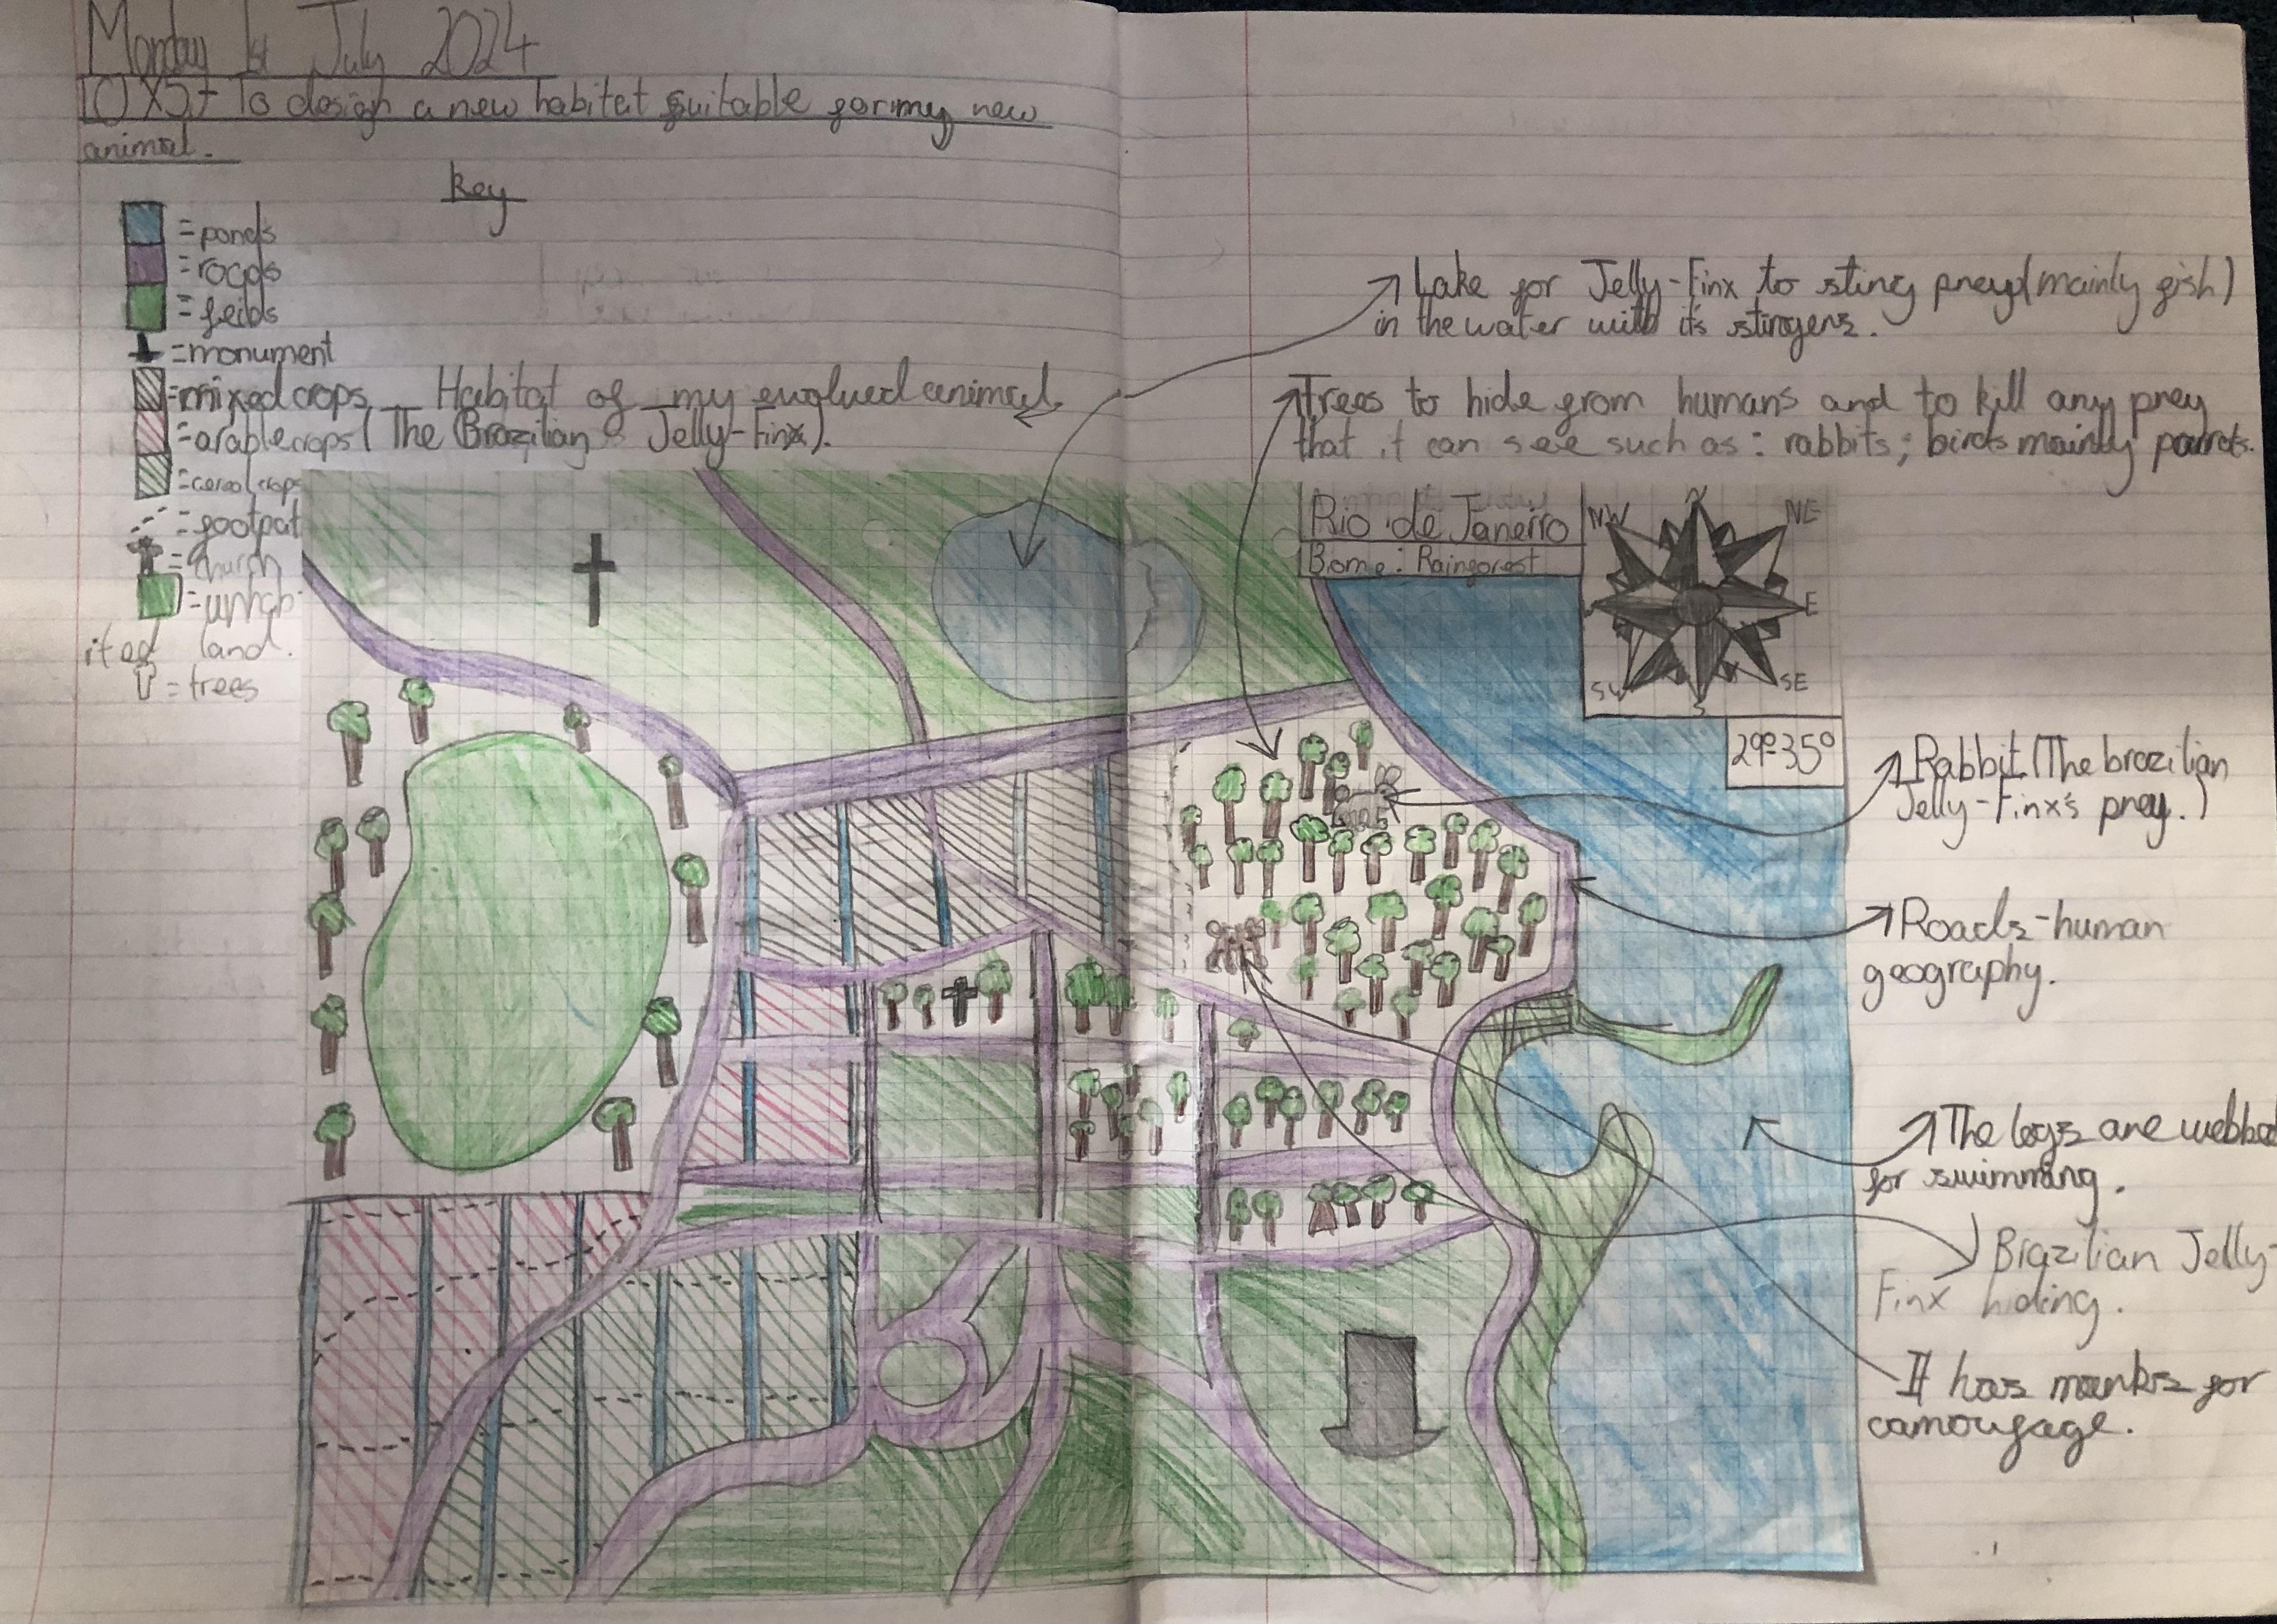 Monday 1st July 2024
LO X5:- To design a new habitat suitable for my new
animal.
Key
= ponds
= roads
= feilds
= monument
= mixed crops
= arable crops
= cereal crops
= footpat
= church
= uninhab
ited land.
= trees
Habitat of my evolved animal
(The Brazilian Jelly-Finx).
Lake for Jelly-Finx to sting prey (mainly fish)
in the water with it's stingers.
Trees to hide from humans and to kill any prey
that it can see such as: rabbits; birds mainly parrots.
Rio de Janeiro
Biome: Rainforest
N
NW
NE
E
SW
SE
S
29°-35°
Rabbit (The brazilian
Jelly-Finx's prey.)
Roads-human
geography.
The legs are webbed
for swimming.
Brazilian Jelly-
Finx hiding.
It has marks for
camoufage.